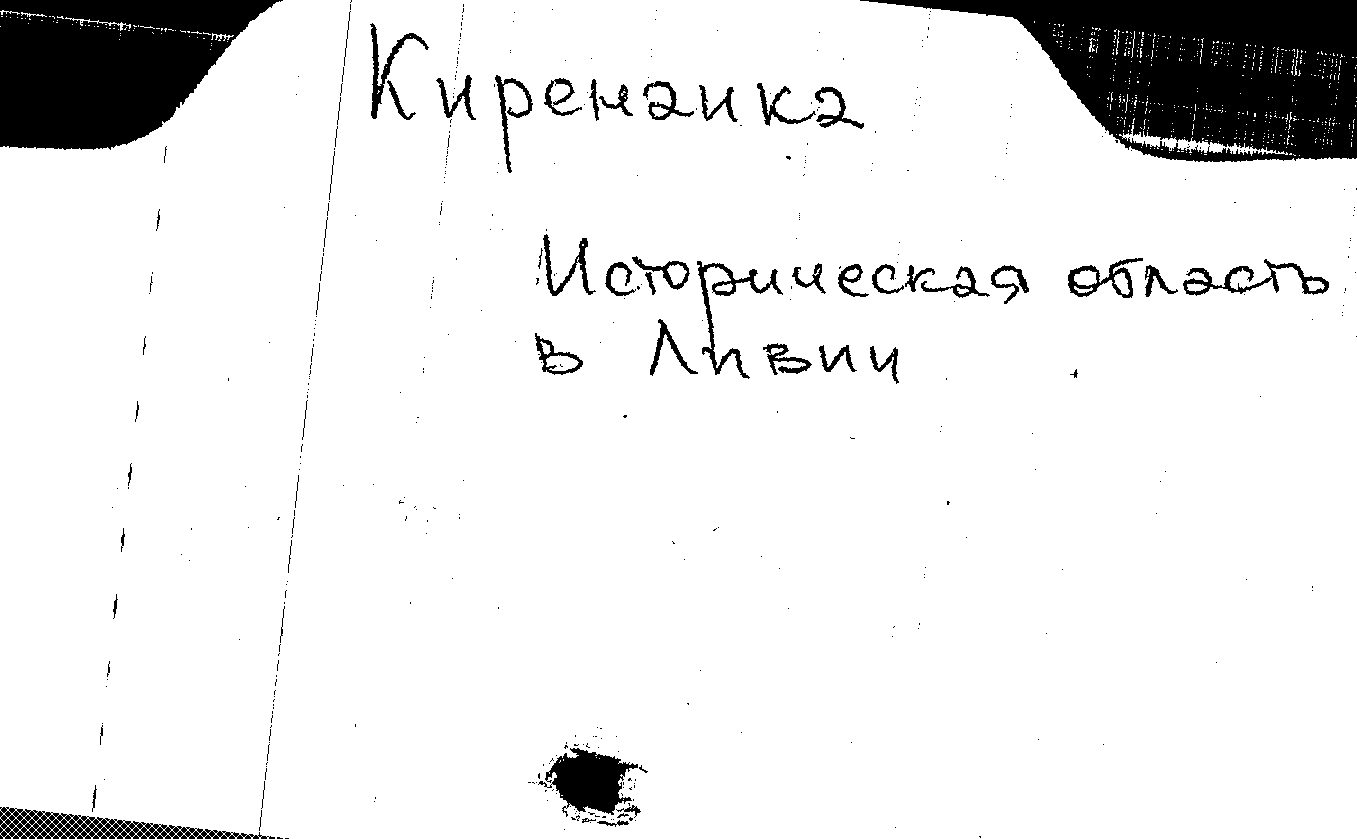 Киренаика
Историческая область
в Ливии